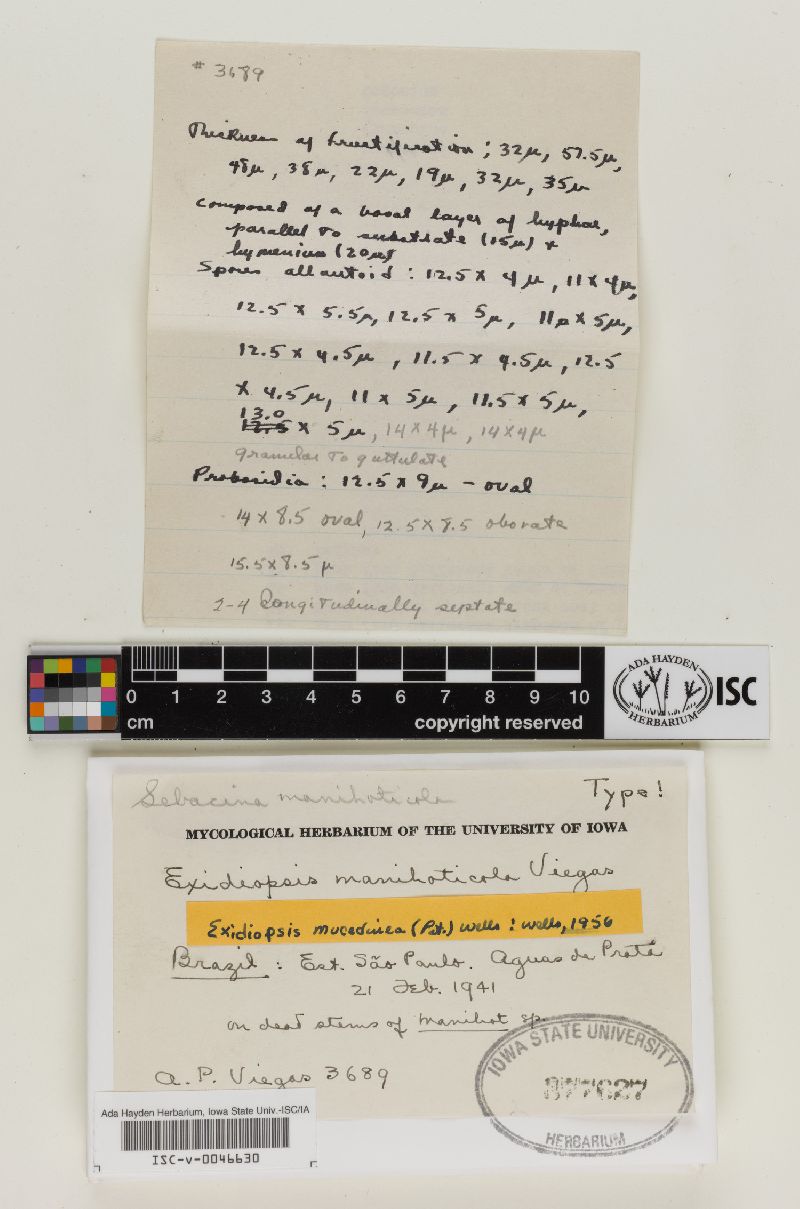 # 3689
Thickness of fructification ; 32μ, 57.5μ,
48μ, 38μ, 22μ, 19μ, 32μ, 35μ
composed of a basal layer of hyphae,
parallel to substrate (15μ) +
hymenium (20μ)
Spores allantoid : 12.5 x 4μ, 11 x 4μ,
12.5 x 5.5μ, 12.5 x 5μ, 11μ x 5μ,
12.5 x 4.5μ, 11.5 x 4.5μ, 12.5
x 4.5μ, 11 x 5μ, 11.5 x 5μ,
13.0
12.5 x 5μ, 14 x 4μ, 14 x 4μ
granular to guttulate
Probasidia : 12.5 x 9μ - oval
14 x 8.5 oval, 12.5 x 8.5 obovate
15.5 x 8.5 μ
2-4 longitudinally septate
0 1 2 3 4 5 6 7 8 9 10
cm copyright reserved
ADA HAYDEN
HERBARIUM
ISC
Sebacina manihoticola Type!
MYCOLOGICAL HERBARIUM OF THE UNIVERSITY OF IOWA
Exidiopsis manihoticola Viegas
Exidiopsis mucedinea (Pat.) Wells : Wells, 1956
Brazil : Est. São Paulo. Aguas da Prata
21 Feb. 1941
on dead stems of Manihot sp.
A. P. Viegas 3689
IOWA STATE UNIVERSITY
HERBARIUM
Ada Hayden Herbarium, Iowa State Univ.-ISC/IA
ISC-v-0046630